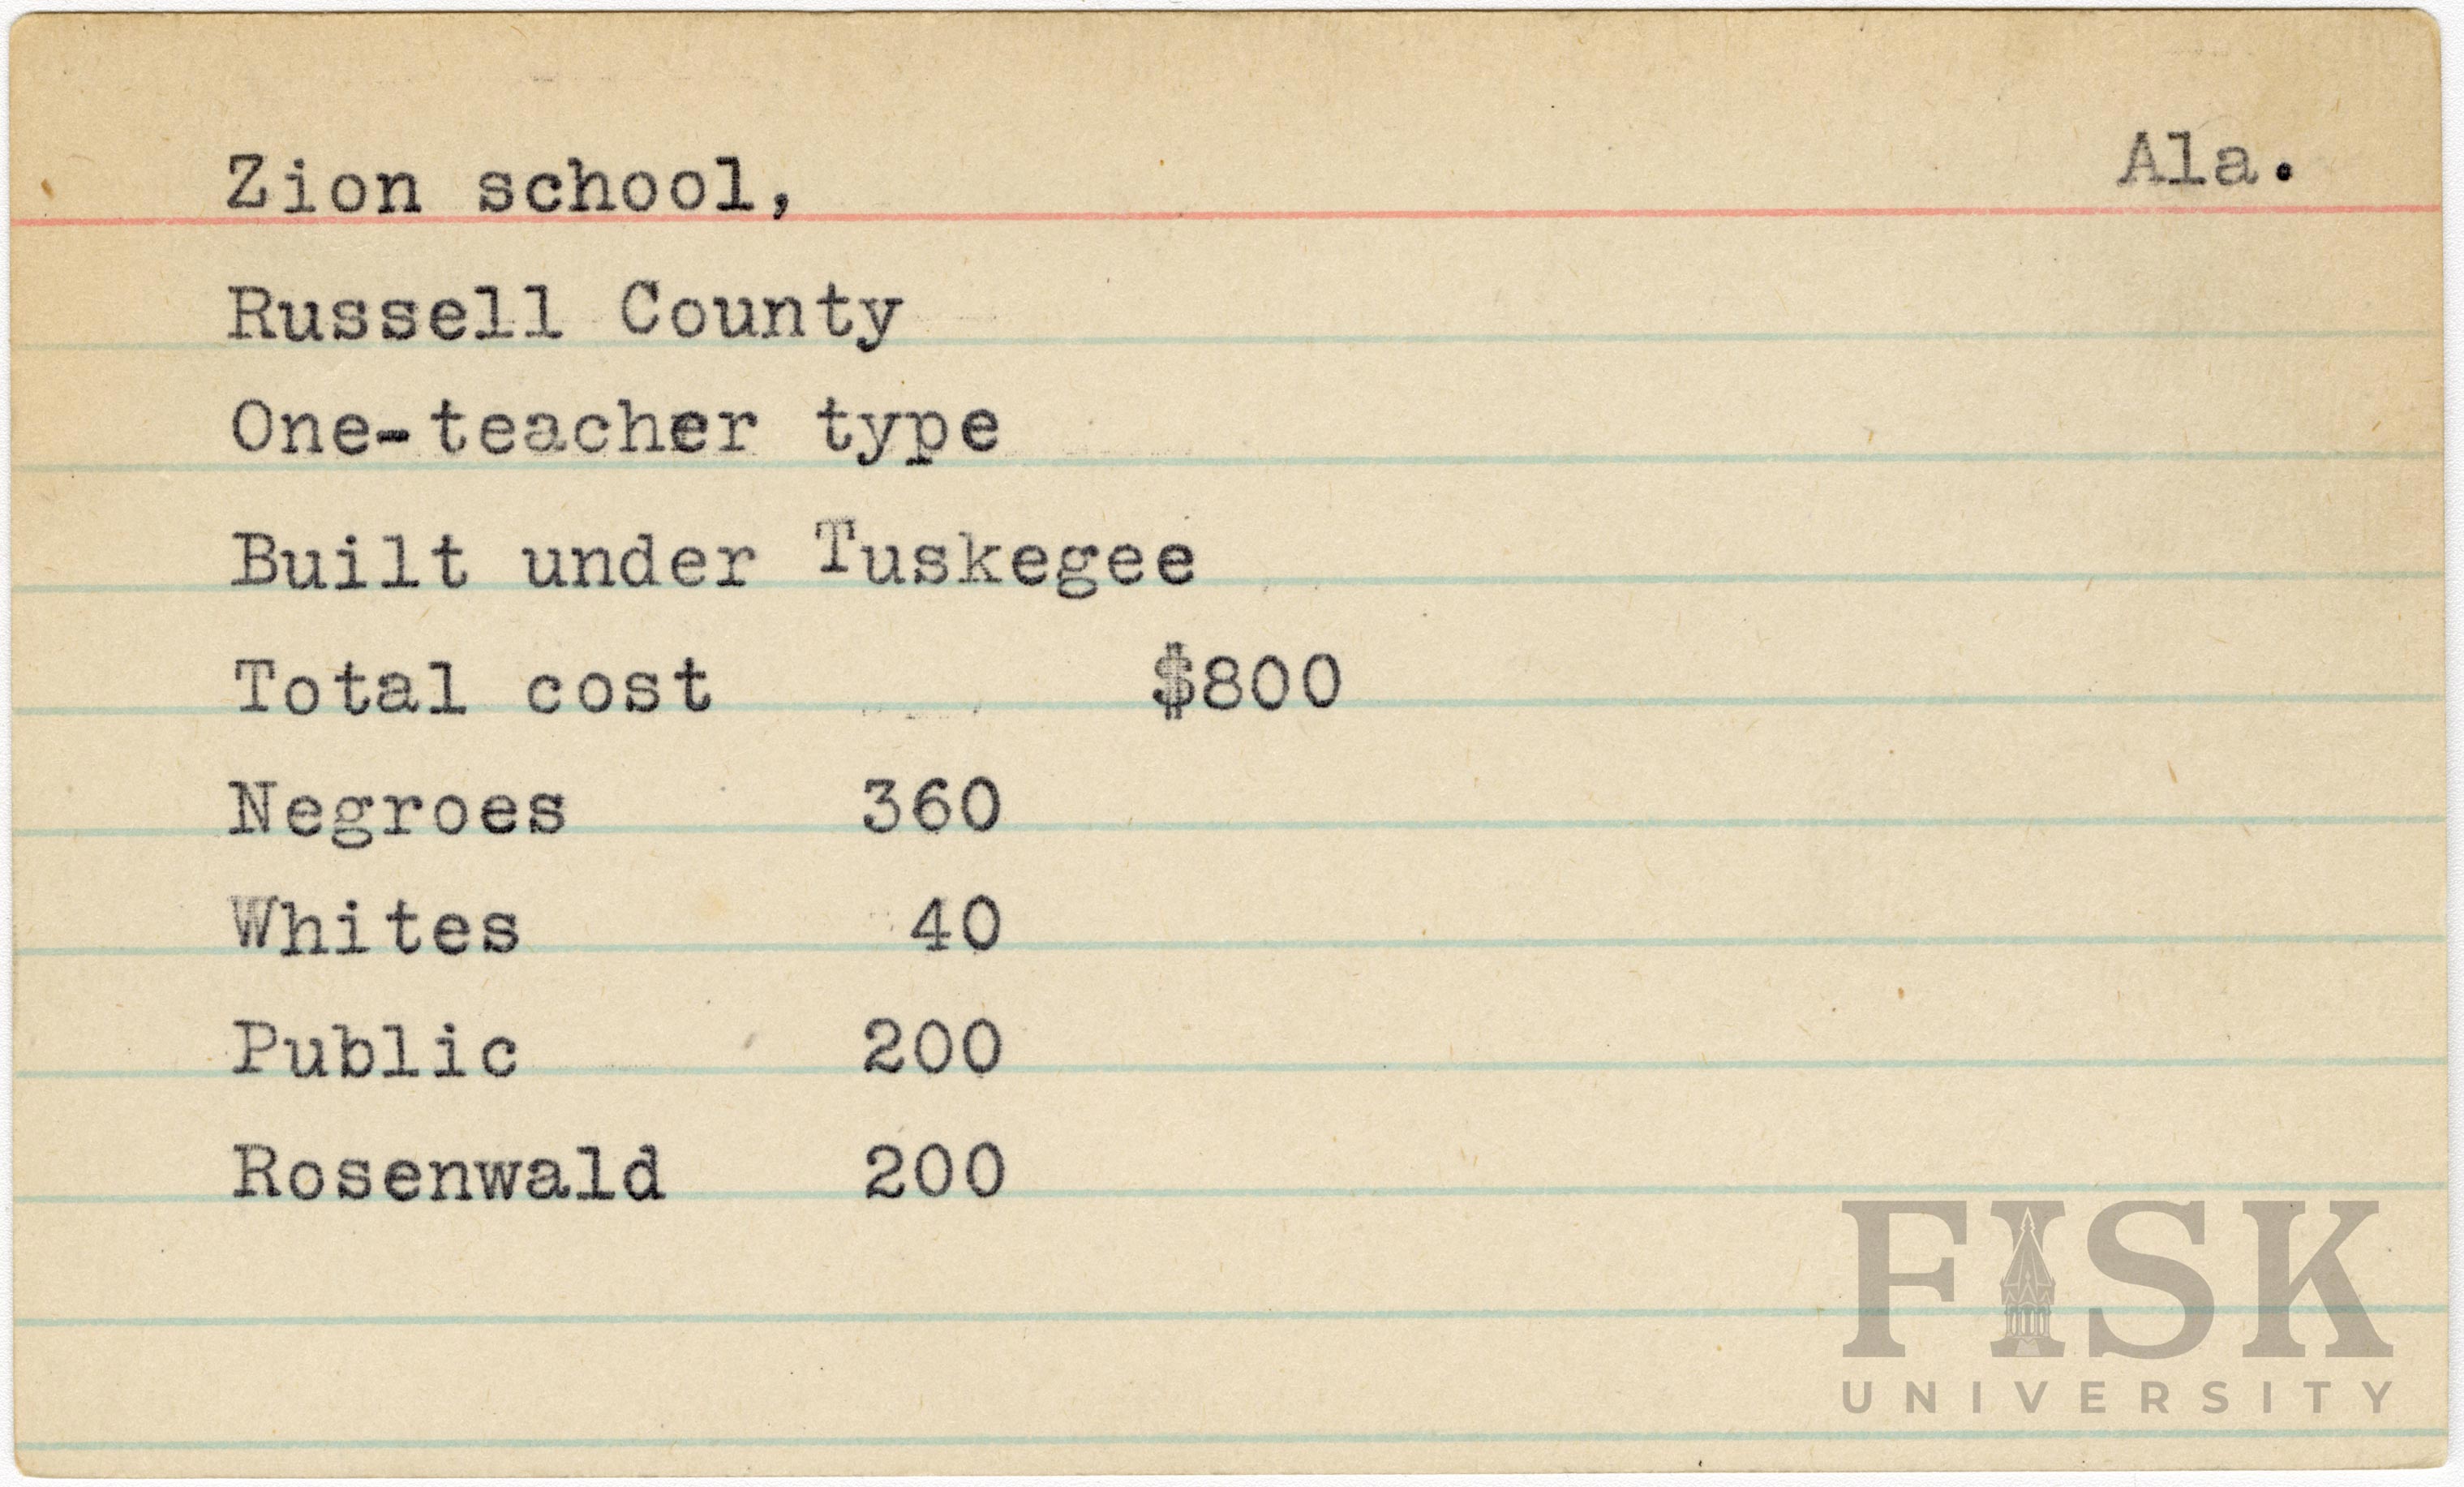 Zion school, Ala.
Russell County
One-teacher type
Built under Tuskegee
Total cost $800
Negroes 360
Whites 40
Public 200
Rosenwald 200
FISK
UNIVERSITY